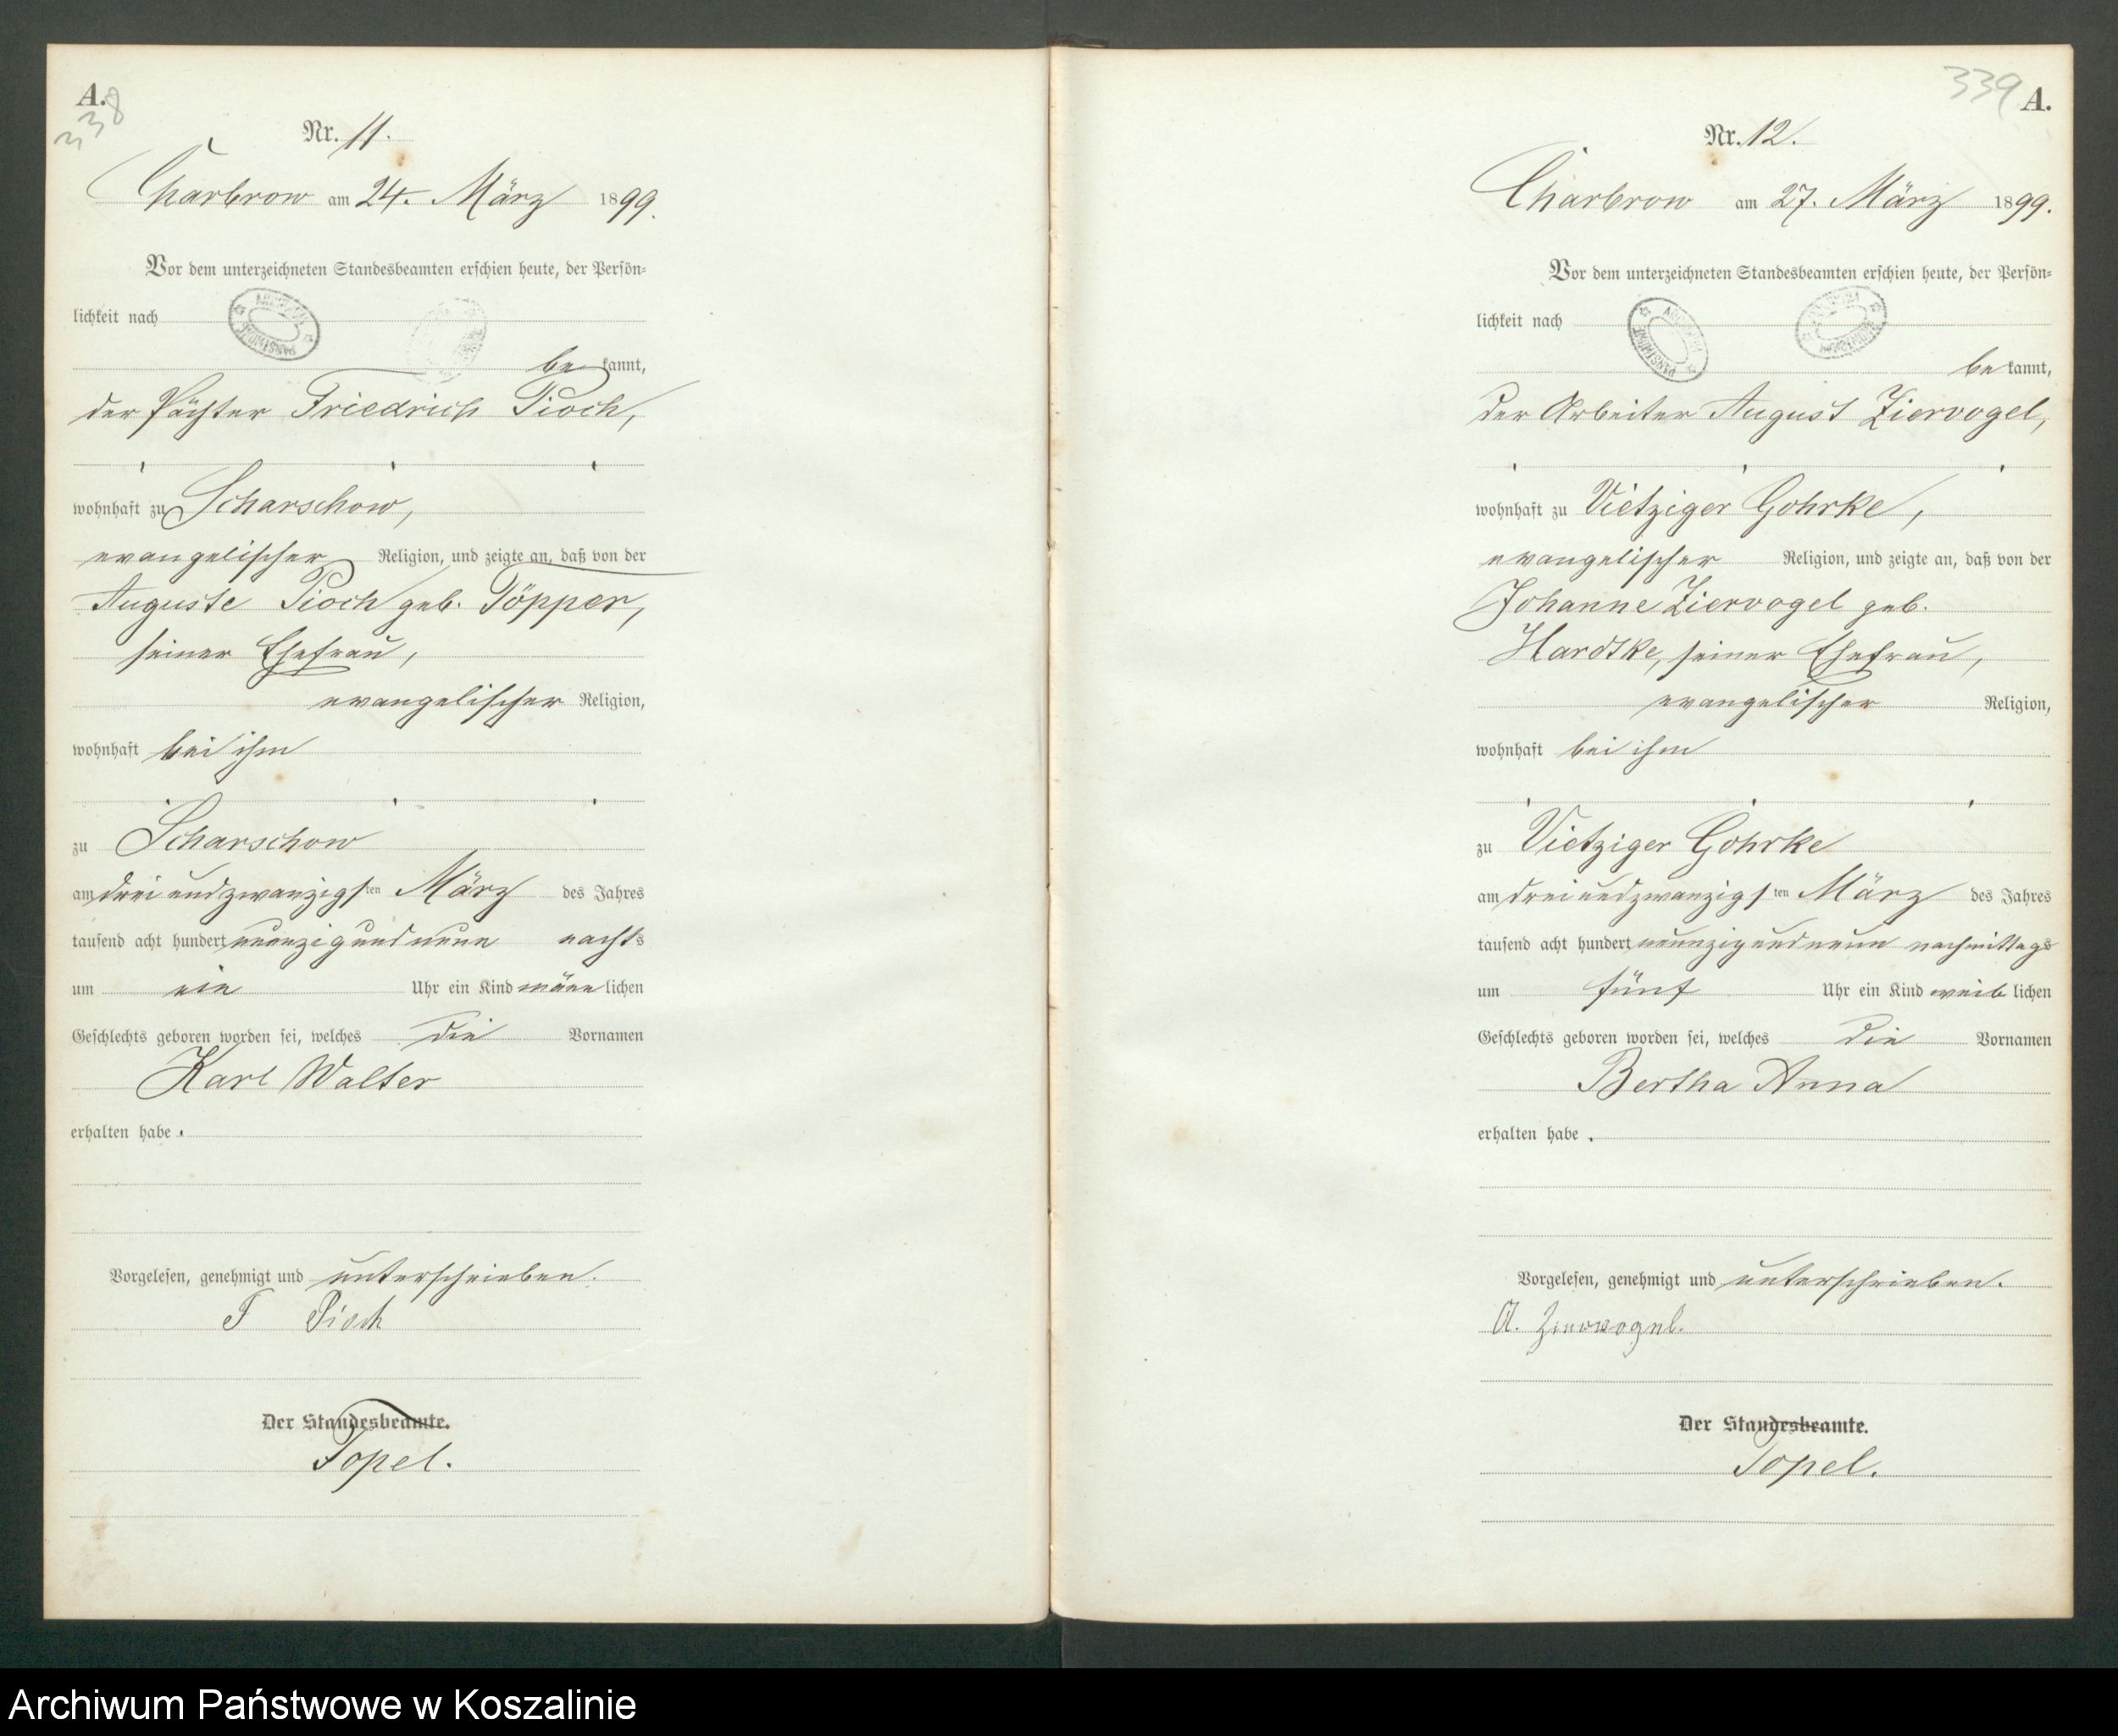 A.
338
Nr. 11.
Charbrow am 24. März 1899.
Vor dem unterzeichneten Standesbeamten erschien heute, der Persön-
lichkeit nach
be kannt,
der Pächter Friedrich Pioch,
wohnhaft zu Scharschow,
evangelischer Religion, und zeigte an, daß von der
Auguste Pioch geb. Töpper,
seiner Ehefrau,
evangelischer Religion,
wohnhaft bei ihm
zu Scharschow
am dreiundzwanzigsten März des Jahres
tausend acht hundert neunzig und neun nachts
um ein Uhr ein Kind männlichen
Geschlechts geboren worden sei, welches die Vornamen
Karl Walter
erhalten habe.
Vorgelesen, genehmigt und unterschrieben.
F Pioch
Der Standesbeamte.
Topel.
339
A.
Nr. 12.
Charbrow am 27. März 1899.
Vor dem unterzeichneten Standesbeamten erschien heute, der Persön-
lichkeit nach
be kannt,
der Arbeiter August Ziervogel,
wohnhaft zu Vietziger Gohrke,
evangelischer Religion, und zeigte an, daß von der
Johanne Ziervogel geb.
Hardtke, seiner Ehefrau,
evangelischer Religion,
wohnhaft bei ihm
zu Vietziger Gohrke
am dreiundzwanzigsten März des Jahres
tausend acht hundert neunzig und neun nachmittags
um fünf Uhr ein Kind weiblichen
Geschlechts geboren worden sei, welches die Vornamen
Bertha Anna
erhalten habe.
Vorgelesen, genehmigt und unterschrieben.
A. Ziervogel.
Der Standesbeamte.
Topel.
Archiwum Państwowe w Koszalinie